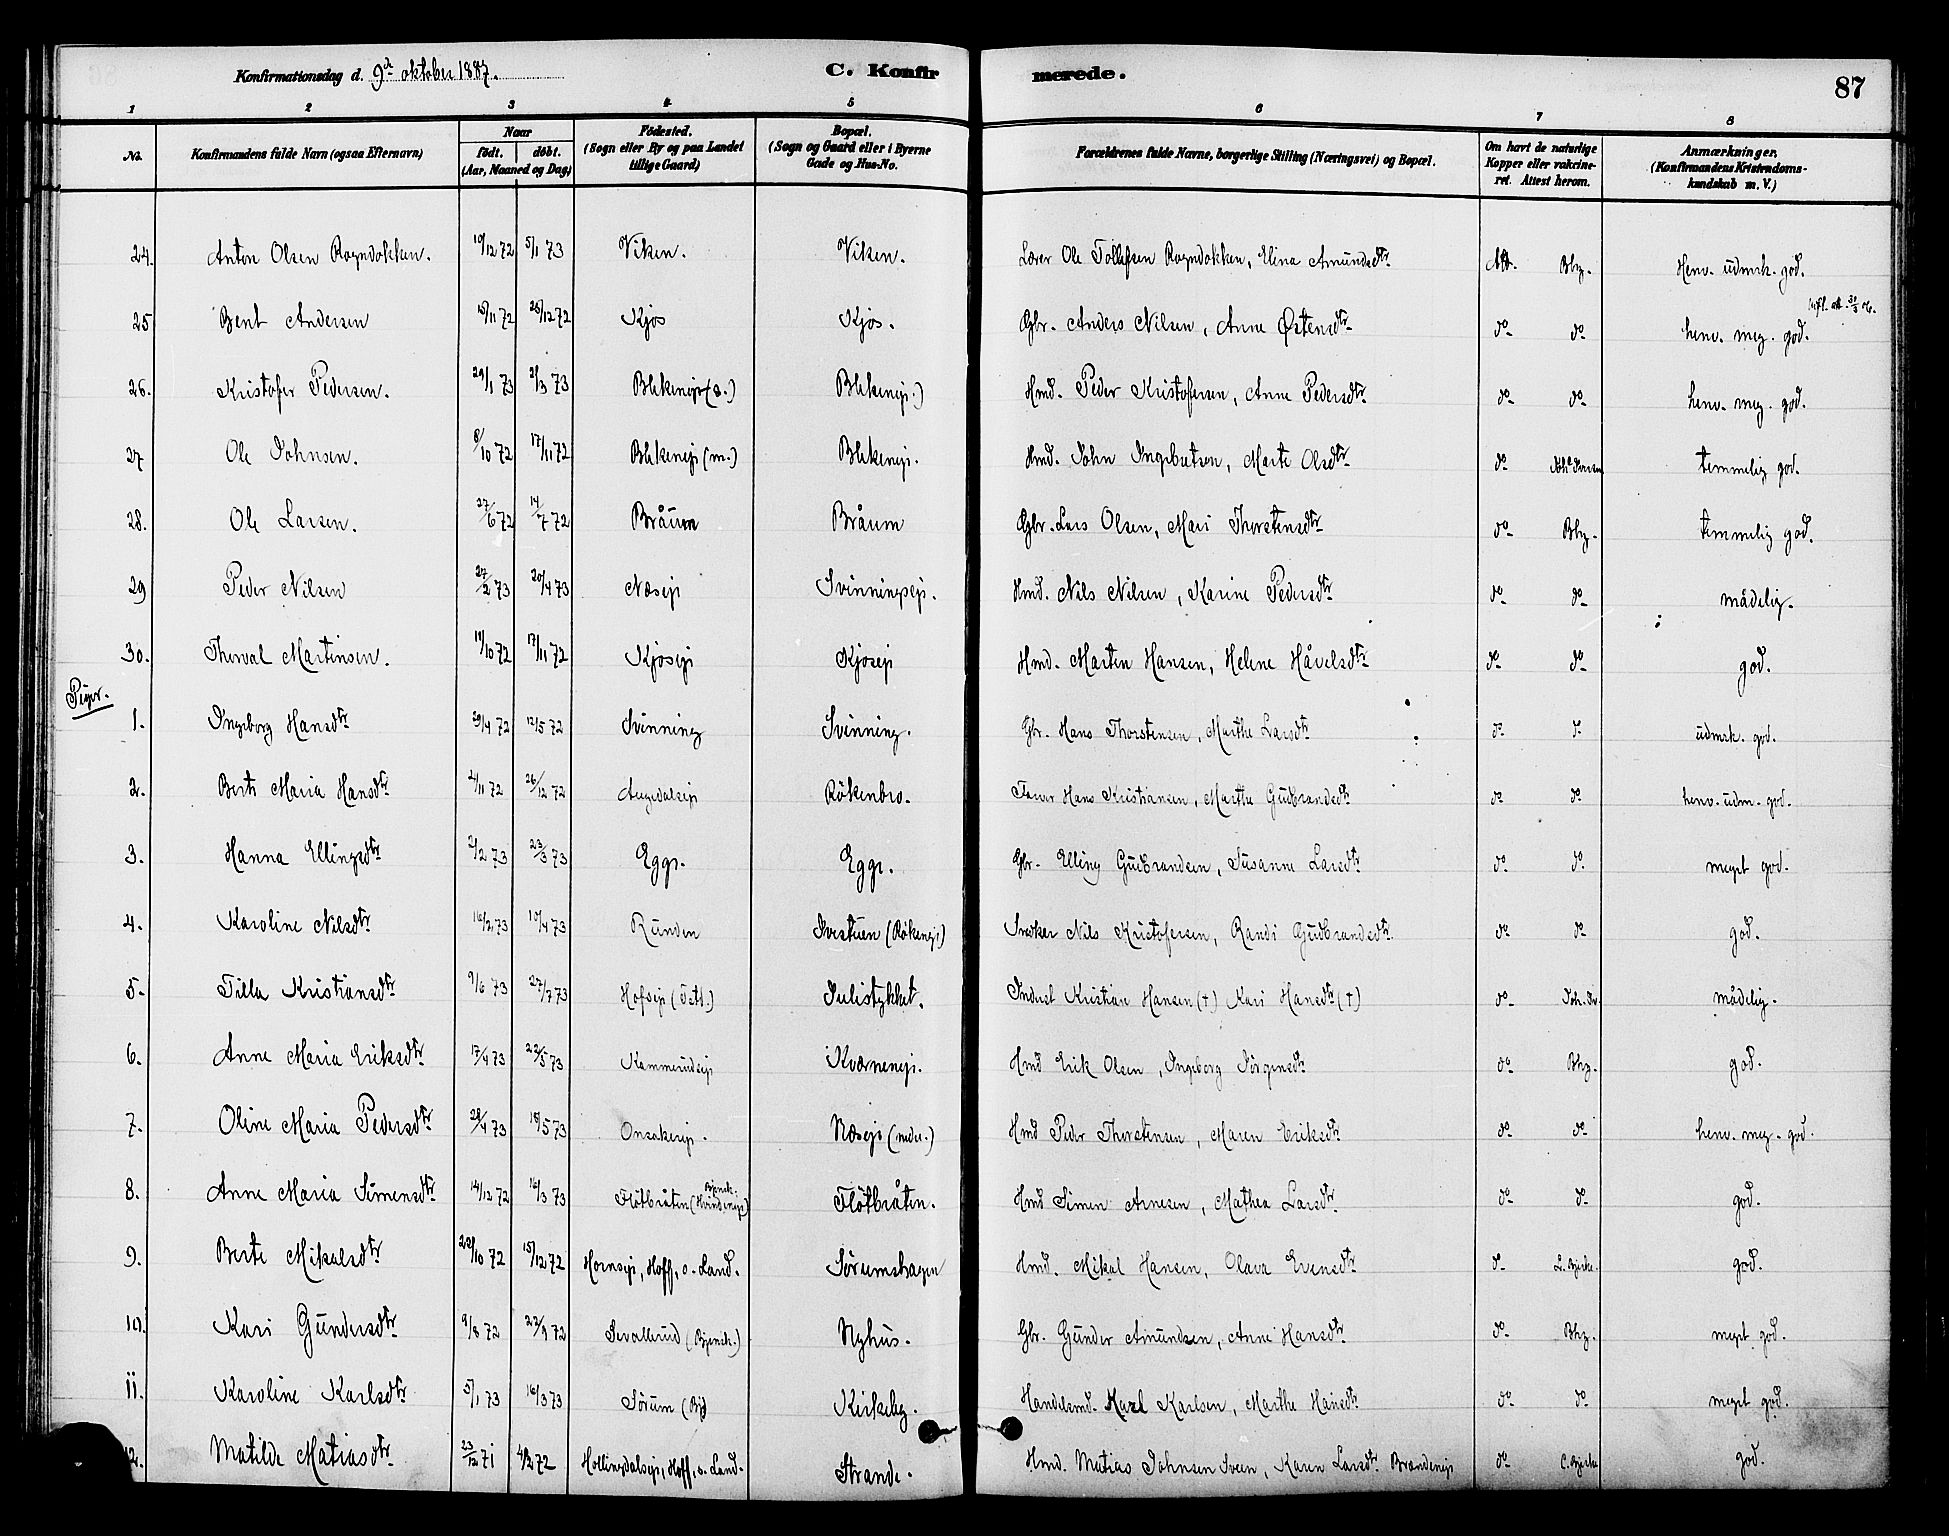 Konfirmationsdag d. 9de oktober 1887. C. Konfirmerede. 87
1 2 3 4 5 6 7 8
No. Konfirmandens fulde Navn (ogsaa Efternavn) Naar født. døbt. (Aar, Maaned og Dag) Fødested. (Sogn eller By og paa Landet tillige Gaard) Bopæl. (Sogn og Gaard eller i Byerne Gade og Hus-No. Forældrenes fulde Navne, borgerlige Stilling (Næringsvei) og Bopæl. Om havt de naturlige Kopper eller vakcineret. Attest herom. Anmærkninger. (Konfirmandens Kristendomskundskab m. V.)
24. Anton Olsen Rogndokken. 10/12 72 5/1 73 Viken. Viken. Lærer Ole Tollefsen Rogndokken, Elina Amundsdtr Att. Bhg. Henv. udmrk. god.
25 Bent Andersen 15/11 72 26/12 72 Kjos Kjos. Gbr. Anders Nilsen, Anne Østensdtr do do henv. meg. god.
26. Kristofer Pedersen. 29/1 73 2/3 73 Blekenejs (s.) Blekenejs.) Hmd. Peder Kristofersen, Anne Pedersdtr do do henv. meg. god.
27 Ole Johnsen. 8/10 72 17/11 72 Blekenejs (m.) Blekenejs. Hmd. John Ingebretsen, Marte Olsdtr do temmelig god.
28. Ole Larsen. 27/6 72 14/7 72 Bråum Bråum Gbr. Lars Olsen, Mari Thorstensdtr do Bhg. temmelig god.
29 Peder Nilsen 27/2 73 20/4 73 Næsejs Svinningsejs. Hmd. Nils Nilsen, Karine Pedersdtr do do mådelig.
30. Thorval Martinsen. 19/10 72 17/11 72 Kjosejs Kjosejs Hmd. Marten Hansen, Helene Håvelsdtr do do god.
Piger.
1. Ingeborg Hansdtr 29/4 72 12/5 72 Svinning Svinning. Gbr. Hans Thorstensen, Marthe Larsdtr do do udmrk. god.
2. Berte Maria Hansdtr 2/11 72 26/12 72 Augedalsejs Rökenbro. Hans Kristiansen, Marthe Gudbrandsdtr do do henv. udm. god.
3. Hanna Ellingsdtr 2/2 73 23/3 73 Egge. Egge. Gbr. Elling Gudbrandsen, Susanne Larsdtr do do meget god.
4. Karoline Nilsdtr 16/2 73 10/4 73 Runden Ivestuen (Rökenejs) Snedker Nils Kristofersen, Randi Gudbrandsdtr. do do god.
5. Tilla Kristiansdtr 9/6 73 27/7 73 Hofsejs (Fetl.) Julistykket. Inderst Kristian Hansen (†) Kari Hansdtr (†) do mådelig.
6. Anne Maria Eriksdtr 17/4 73 22/5 73 Kammerudsejs Kværnenejs. Hmd Erik Olsen, Ingeborg Jörgensdtr do Bhg. god.
7. Oline Maria Pedersdtr 28/4 73 18/5 73 Onsakerejs. Næsejs (nedr.) Hmd Peder Thorstensen, Maren Eriksdtr do do henv. meg. god.
8. Anne Maria Simensdtr 14/12 72 16/3 73 Flötbråten Flötbråten. Hmd Simen Arnesen, Mathea Larsdtr do do god.
9. Berte Mikalsdtr 22/10 72 15/12 72 Hornsejs, Hoff, ö. Land. Sörumshagen Hmd. Mikal Hansen, Olava Evensdtr do L. Bjerke. god.
10. Kari Gundersdtr 9/8 72 22/9 72 Sevallerud (Bjonsk.) Nyhus. Gbr. Gunder Amundsen, Anne Hansdtr do Bhg. meget god.
11. Karoline Karlsdtr 5/1 73 16/3 73 Sörum Kirkeby. Handelsmd. Karl Karlsen, Marthe Hansdtr do do meget god.
12. Matilde Matiasdtr 23/12 71 4/2 72 Hollingdalsejs, Hoff, ö. Land. Strande. Hmd. Matias Johnsen Sveen, Karen Larsdtr Brandenejs do god.